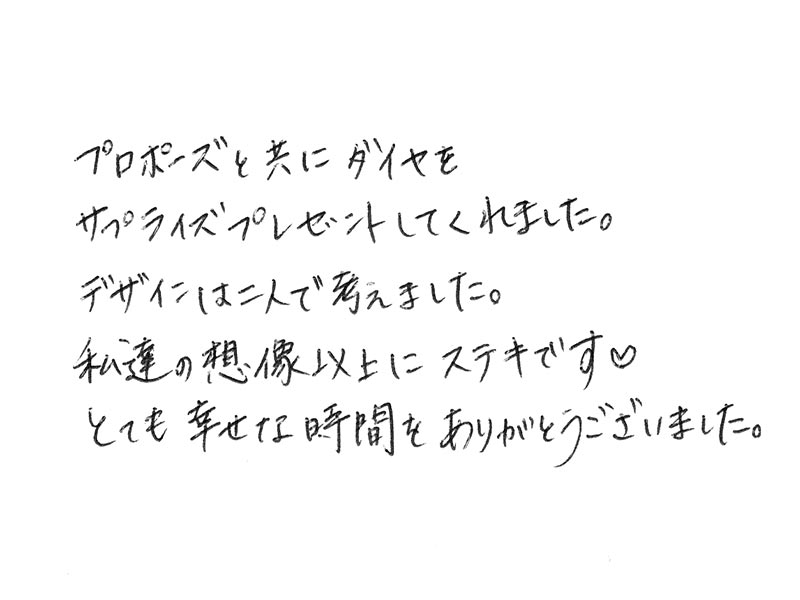 プロポーズと共にダイヤを
サプライズプレゼントしてくれました。
デザインは二人で考えました。
私達の想像以上にステキです♡
とても幸せな時間をありがとうございました。